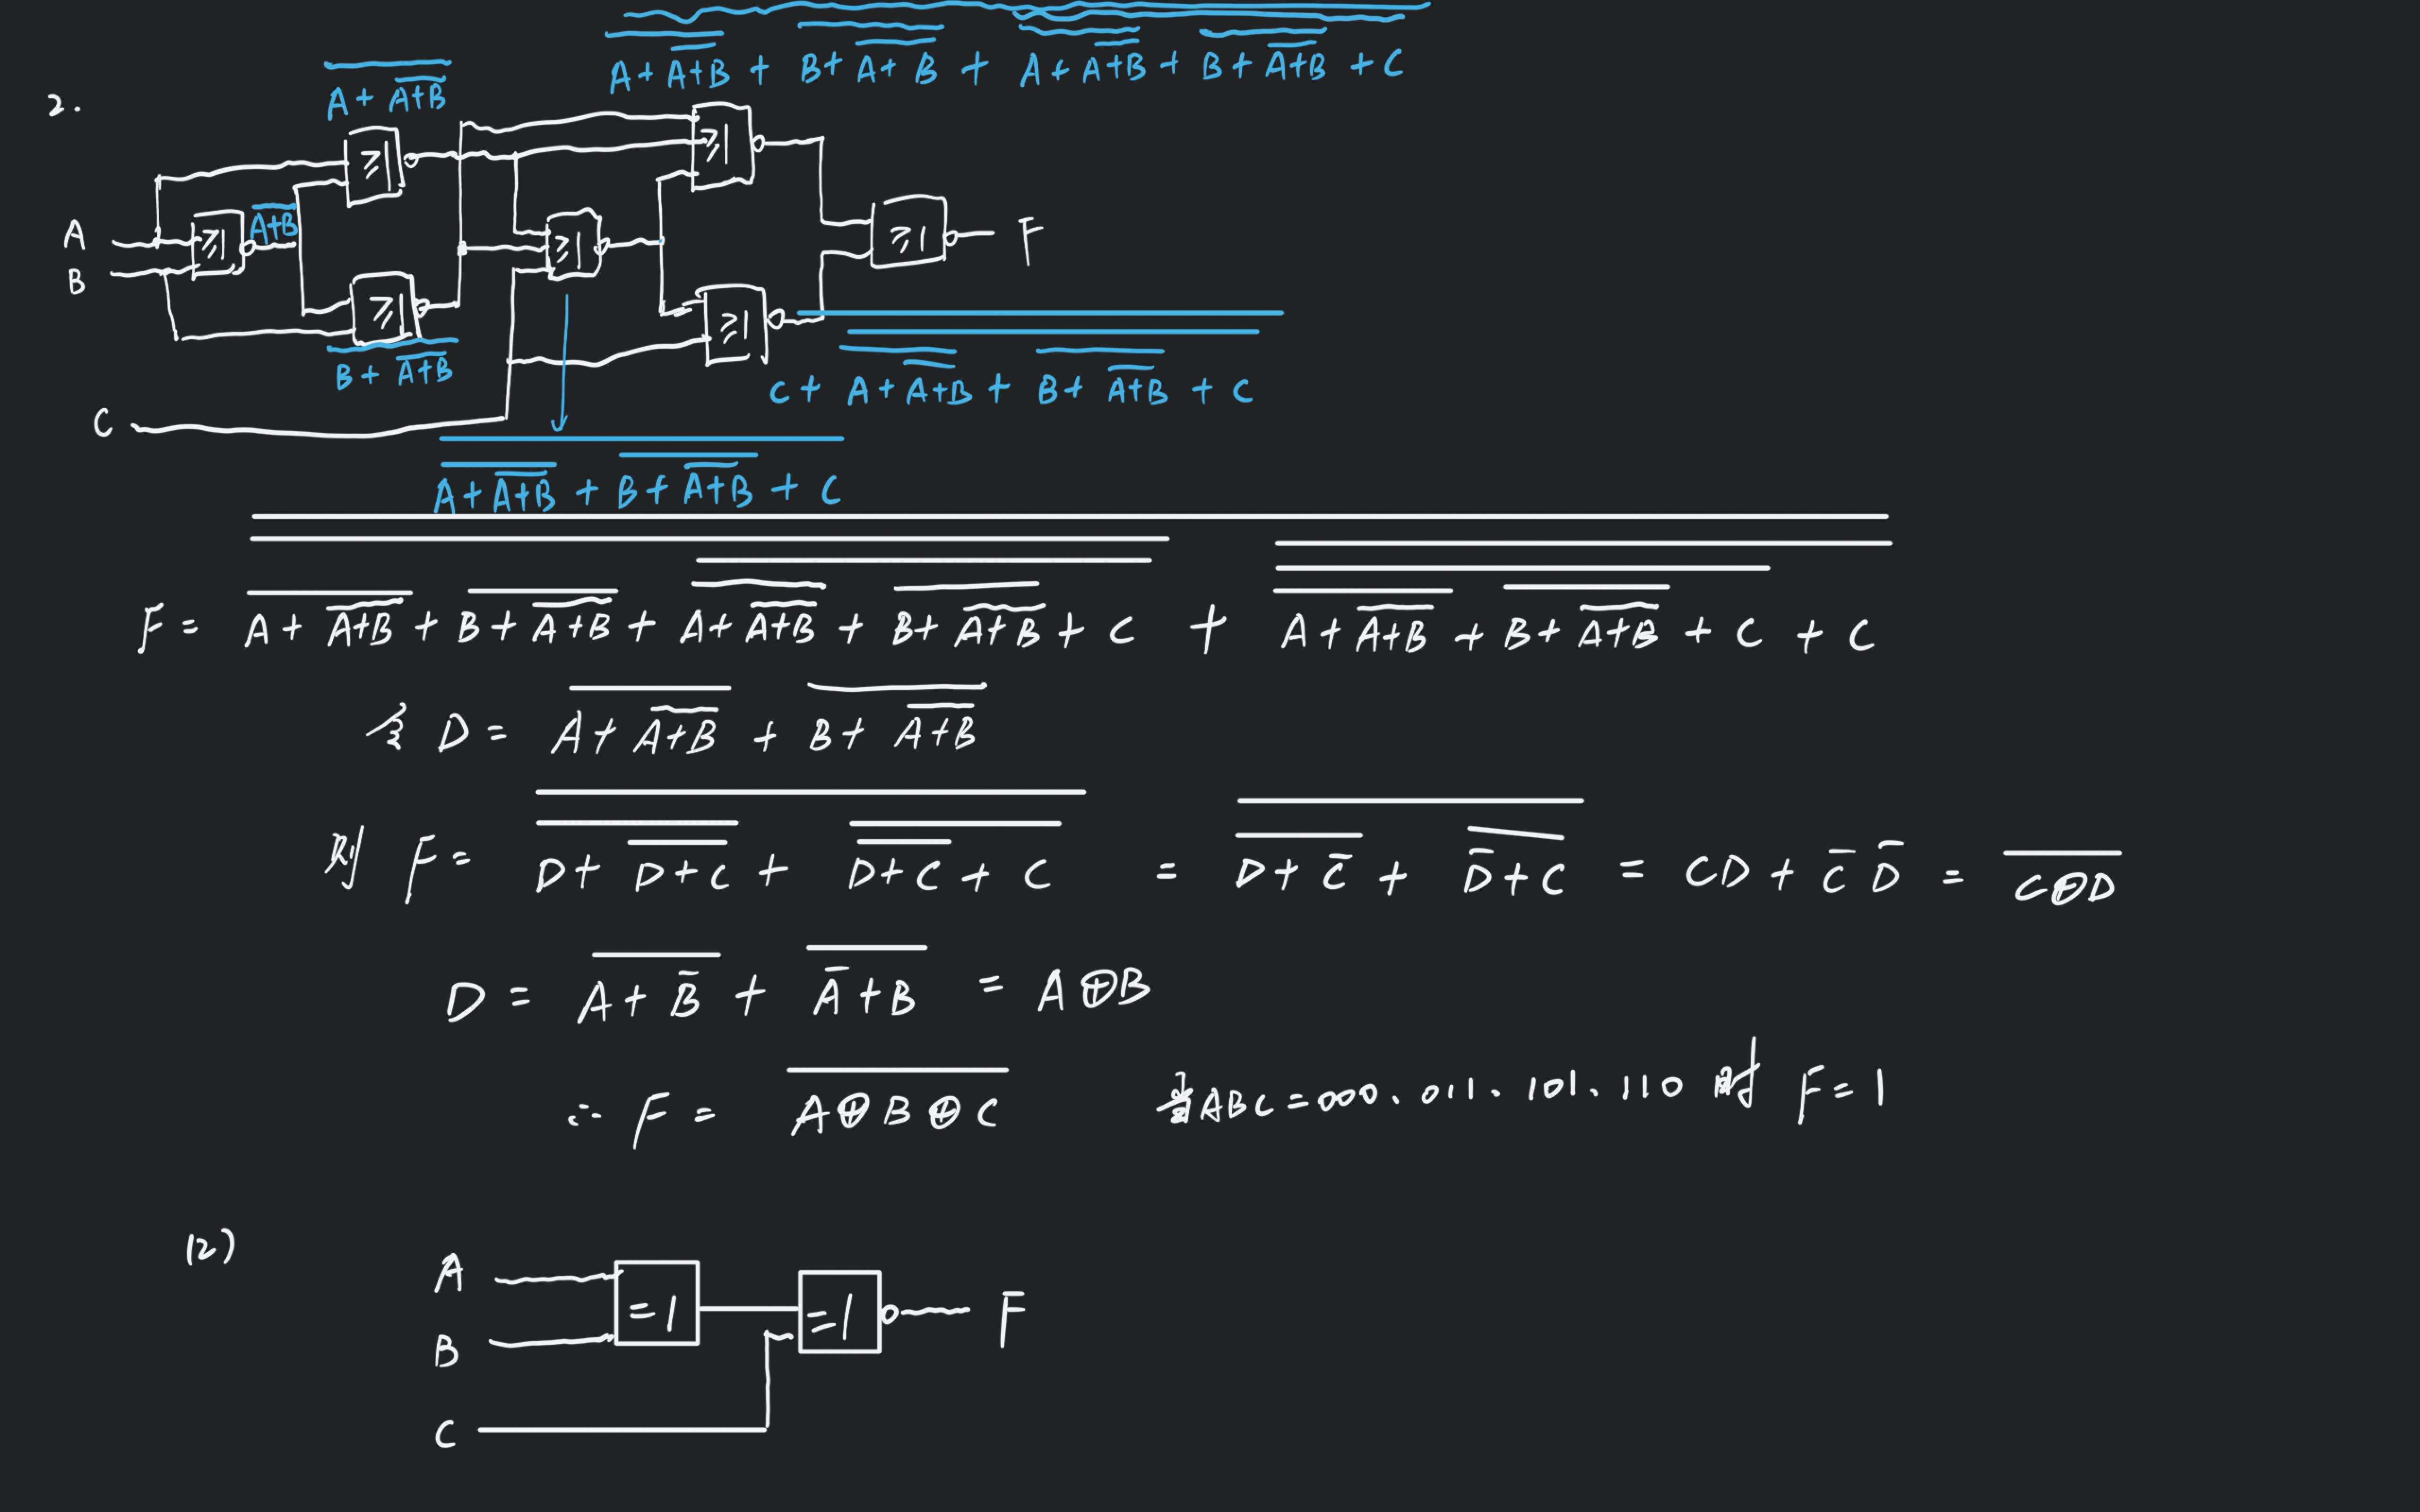 A + A+B + B + A + B + A + A+B + B + A+B + C
A + A+B
2.
≥1
≥1
A
B
≥1
A+B
≥1
≥1
F
≥1
≥1
B + A+B
C + A + A+B + B + A+B + C
C
A + A+B + B + A+B + C
F = A + A+B + B + A+B + A + A+B + B + A+B + C + A + A+B + B + A+B + C + C
令 D = A + A+B + B + A+B
则 F = D + D+C + D+C + C = D + C̄ + D̄ + C = CD + C̄ D̄ = C⊕D
D = A + B̄ + Ā + B = A⊕B
∴ F = A⊕B⊕C 当ABC=000、011、101、110 时 F=1
(2)
A
=1
=1
F
B
C